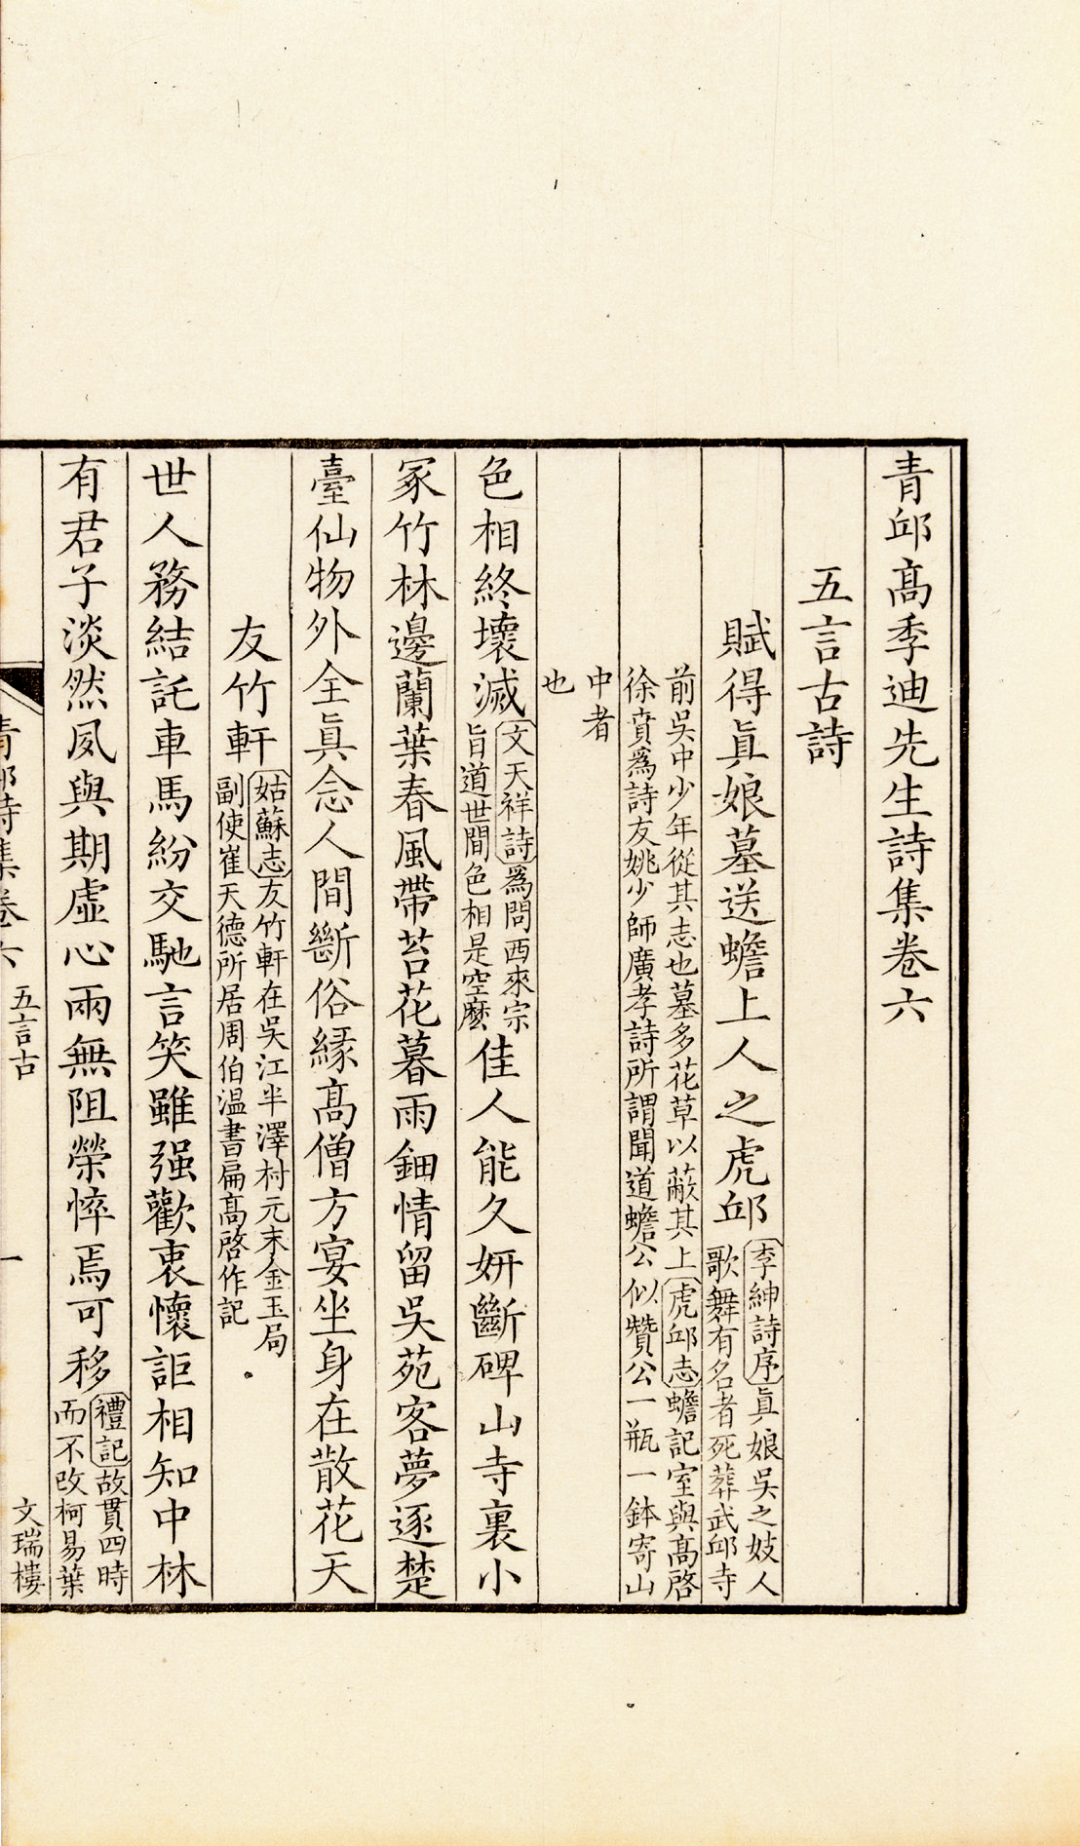 青邱高季迪先生詩集卷六
五言古詩
賦得眞娘墓送蟾上人之虎邱
李紳詩序眞娘吳之妓人
歌舞有名者死葬武邱寺
前吳中少年從其志也墓多花草以蔽其上虎邱志蟾記室與高啓
徐賁爲詩友姚少師廣孝詩所謂聞道蟾公似贊公一瓶一鉢寄山
中者
也
色相終壞滅
文天祥詩爲問西來宗
旨道世間色相是空麽
佳人能久妍斷碑山寺裏小
冢竹林邊蘭葉春風帶苔花暮雨鈿情留吳苑客夢逐楚
臺仙物外全眞念人間斷俗緣高僧方宴坐身在散花天
友竹軒
姑蘇志友竹軒在吳江半澤村元末金玉局
副使崔天德所居周伯温書扁高啓作記
世人務結託車馬紛交馳言笑雖强歡衷懷詎相知中林
有君子淡然夙與期虛心兩無阻榮悴焉可移
禮記故貫四時
而不改柯易葉
五言古
一
文瑞樓